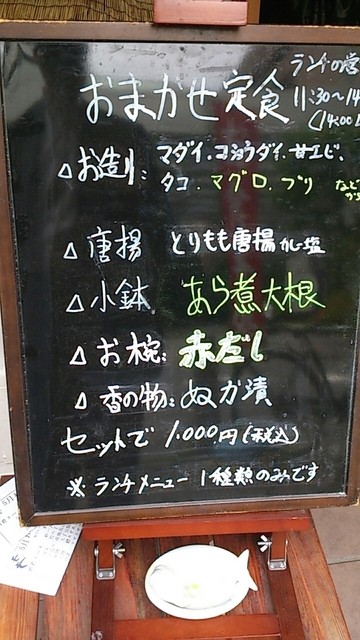 おまかせ定食
ランチの営
11:30〜14
(14:00L
△お造り: マダイ.コショウダイ.甘エビ.
タコ.マグロ.ブリ など
から
△唐揚 とりもも唐揚カレー塩
△小鉢 あら煮大根
△お椀: 赤だし
△香の物: ぬか漬
セットで 1,000円(税込)
※ランチメニュー 1種類のみです